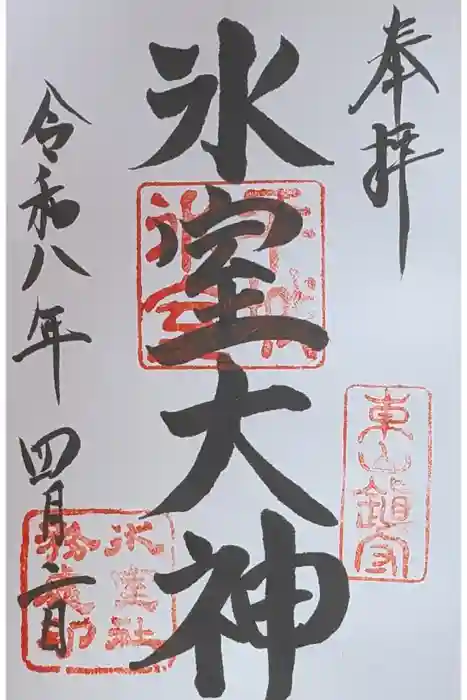 奉拝
氷室大神
令和八年四月二日
平城
氷室
東山鎮守
氷室社
務所印